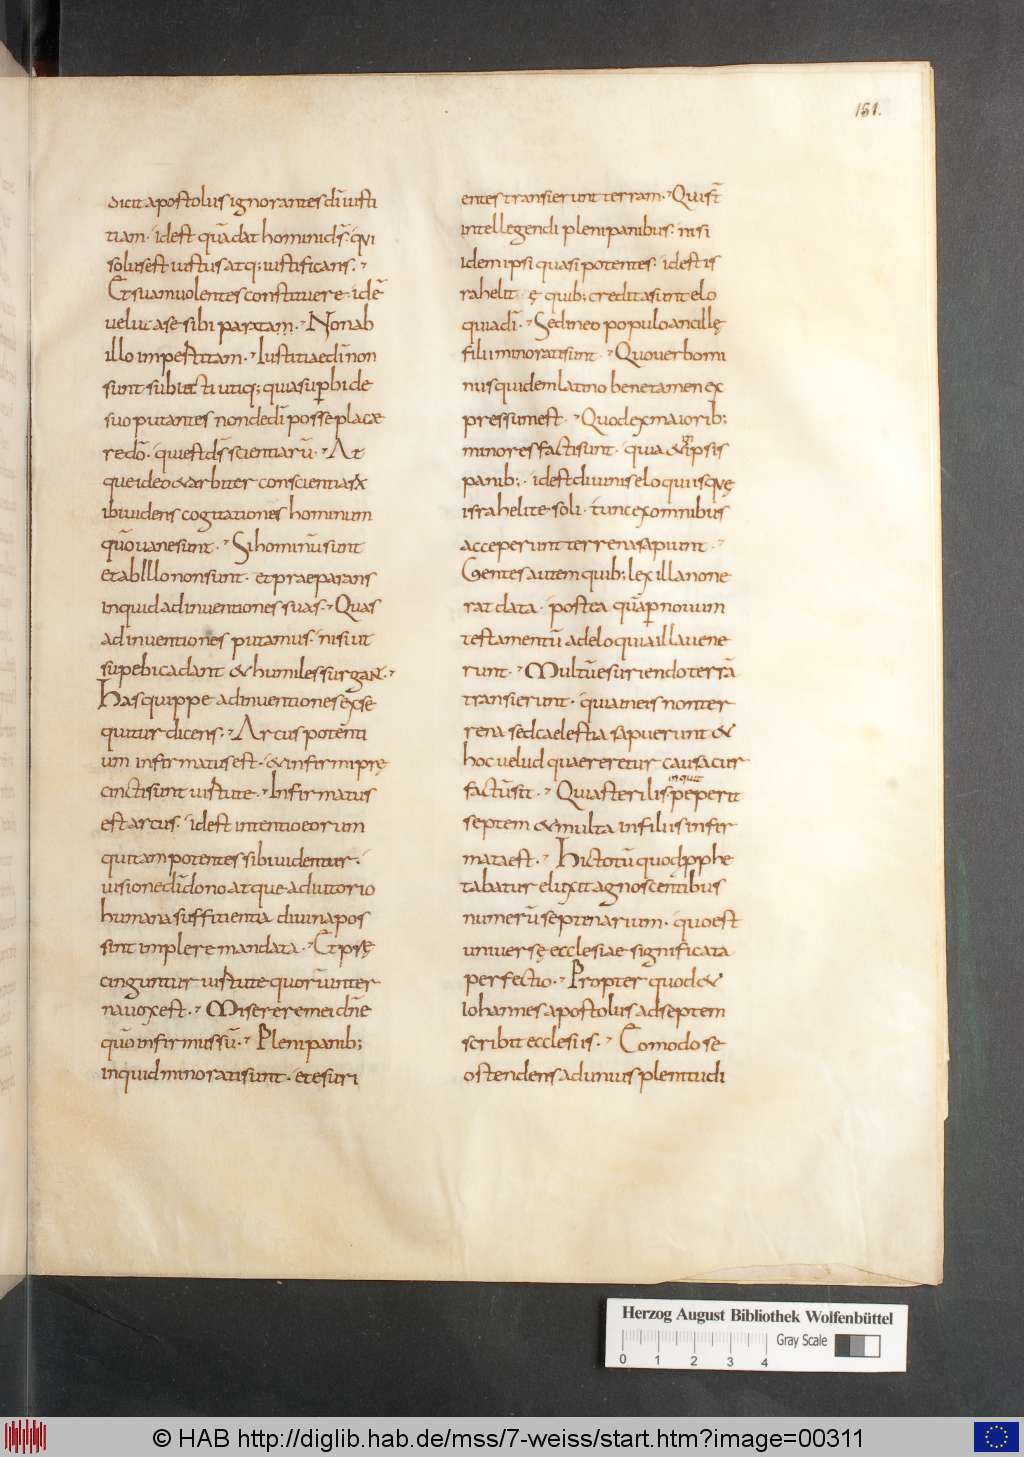 151.
dicit apostolus ignorantes dī iusti
tiam· idest quā dat homini ds̄· qui
solus est iustus atq; iustificans·
Et suam uolentes constituere· idē
uelut a se sibi partam· Non ab
illo impestitam· Iustitiae dī non
sunt subiecti utiq; quia suꝑbi de
suo putantes non de dī posse place
re dō· qui est ds̄ scientiarū· At
que ideo & arbiter conscientiarū
ibi uidens cogitationes hominum
quō uane sunt· Si hominū sunt
et ab Illo non sunt· et praeparans
inquid adinuentiones suas· Quas
adinuentiones putamus· nisi ut
supebi cadant & humiles surgant·
Has quippe adinuentiones exse
quitur dicens· Arcus potenti
um infirmatus est· & infirmi prę
cincti sunt uirtute· Infirmatus
est arcus· id est intentio eorum
qui tam potentes sibi uidentur·
ui sine dī dono atque adiutorio
humana sufficientia diuina pos
sint implere mandata· Et prę
cinguntur uirtute quorū inter
na uox est· Miserere mei dn̄e
quō infirmus sū· Pleni panib;
inquid minorati sunt· et esuri
entes transierunt terram· Qui st̄
intellegendi pleni panibus· nisi
idem ipsi quasi potentes· id est is
rahelitę quib; credita sunt elo
quia dī· Sed in eo populo ancillę
filii minorati sunt· Quo uerbo mi
nus quidem latino bene tamen ex
pressum est· Quod ex maiorib;
minores facti sunt· quia & ipsis
panib;· id est diuinis eloquiis quę
israhelite soli· tunc ex omnibus
acceperunt terrena sapiunt·
Gentes autem quib; lex illa non e
rat data· postea quā ꝑ nouum
testamentū ad eloquia illa uene
runt· Multū esuriendo terrā
transierunt· quia in eis non ter
rena sed caelestia sapuerunt &
hoc uelud quaereretur causa cur
factū sit· Quia sterilis inquit peperit
septem & multa in filiis infir
mata est· Hic totū quod pphe
tabatur eluxit agnoscentibus
numerū septenarium· quo est
uniuersę ecclesiae significata
perfectio· Propter quod &
Iohannes apostolus ad septem
scribit ecclesiis· Eo modo se
ostendens ad unius plenitudi
Herzog August Bibliothek Wolfenbüttel
Gray Scale
0 1 2 3 4
© HAB http://diglib.hab.de/mss/7-weiss/start.htm?image=00311